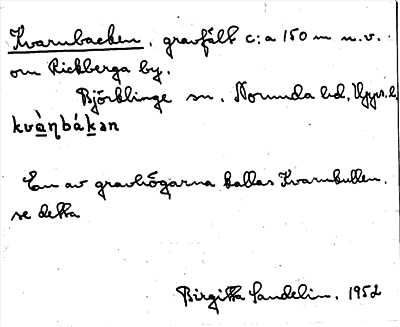 Kvarnbacken, gravfält c:a 150 m n.v.
om Rickberga by.
Björklinge sn. Norunda hd, Upps.l.
kvànbákan
En av gravhögarna kallas Kvarnkullen.
se detta
Birgitta Sandelin. 1952